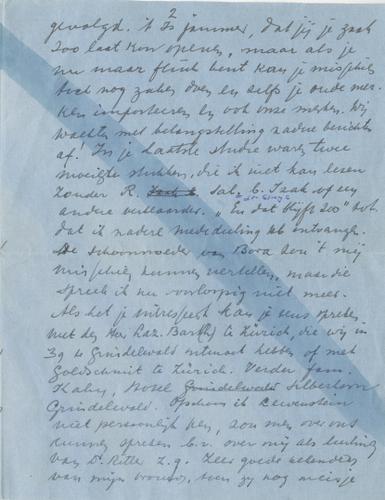 2
gevolgd. 't Is jammer, dat jij je zaak
zoo laat kon openen, maar als je
nu maar flink bent kan je misschien
toch nog zaken doen en zelfs je oude mer-
ken importeeren en ook onze merken. Wij
wachten met belangstelling nadere berichten
af! In je laatste studie waren twee
moeigte stukken, die ik niet kan lezen
zonder R. Salz C. Izak of een
andere verklaarder. „En dat blijft zoo" tot-
dat ik nadere mededeeling heb ontvangen.
De schoonmoeder van Bora zou 't mij
misschien kunnen vertellen, maar die
spreek ik nu voorloopig niet meer.
Als het je interesseert kan je eens spreken
met den Heer Raz. Barth te Zürich, die wij in
39 te Grindelwald ontmoet hebben of met
Goldschmit te Zürich. Verder fam.
Kahn, Hotel Grindelwald Silberhorn
Grindelwald. Ofschoon ik
niet persoonlijk ken, zou men over ons
kunnen spreken b.v. over mij als leerling
van Dr. Ritter z.g. Zeer goede bekenden
van mijn broeder, toen zij nog meisje